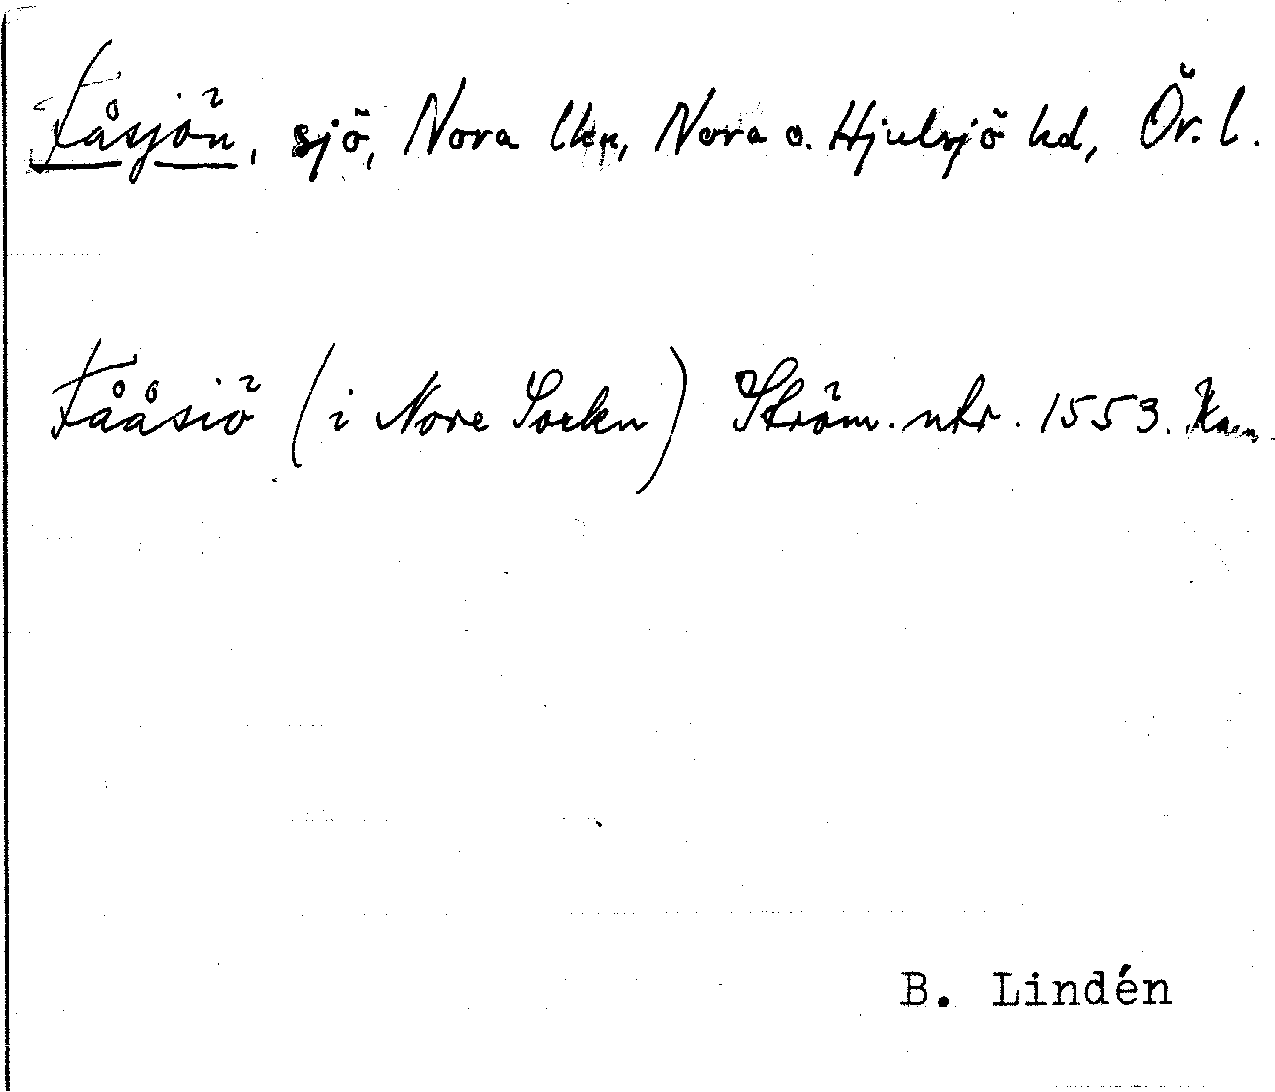 Fåsjön, sjö, Nora lkn, Nora o. Hjulsjö hd, Ör. l.
Fååsiö (i Nore Sockn) Ström. utr. 1553. Kam.
B. Lindén